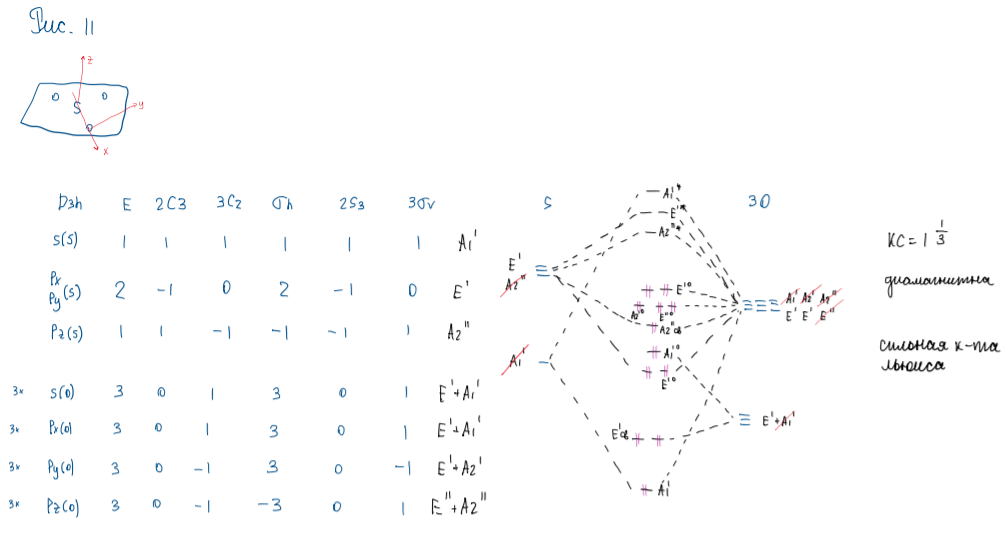 Рис. 11
z
O O
S y
O
x
D3h E 2C3 3C2 σh 2S3 3σv
S(S) 1 1 1 1 1 1 A1'
Px Py (S) 2 -1 0 2 -1 0 E'
Pz(S) 1 1 -1 -1 -1 1 A2''
3× S(O) 3 0 1 3 0 1 E'+A1'
3× Px(O) 3 0 1 3 0 1 E'+A1'
3× Py(O) 3 0 -1 3 0 -1 E'+A2'
3× Pz(O) 3 0 -1 -3 0 1 E''+A2''
S 3O
A1'*
E'*
A2''*
E'
A2''
E'⁰
A2'⁰ E''⁰
A2''св
A1' A2' A2''
E' E' E''
A1'
A1'⁰
E'⁰
E'св
E'+A1'
A1'
КС = 1 1/3
диамагнитна
сильная к-та
Льюиса